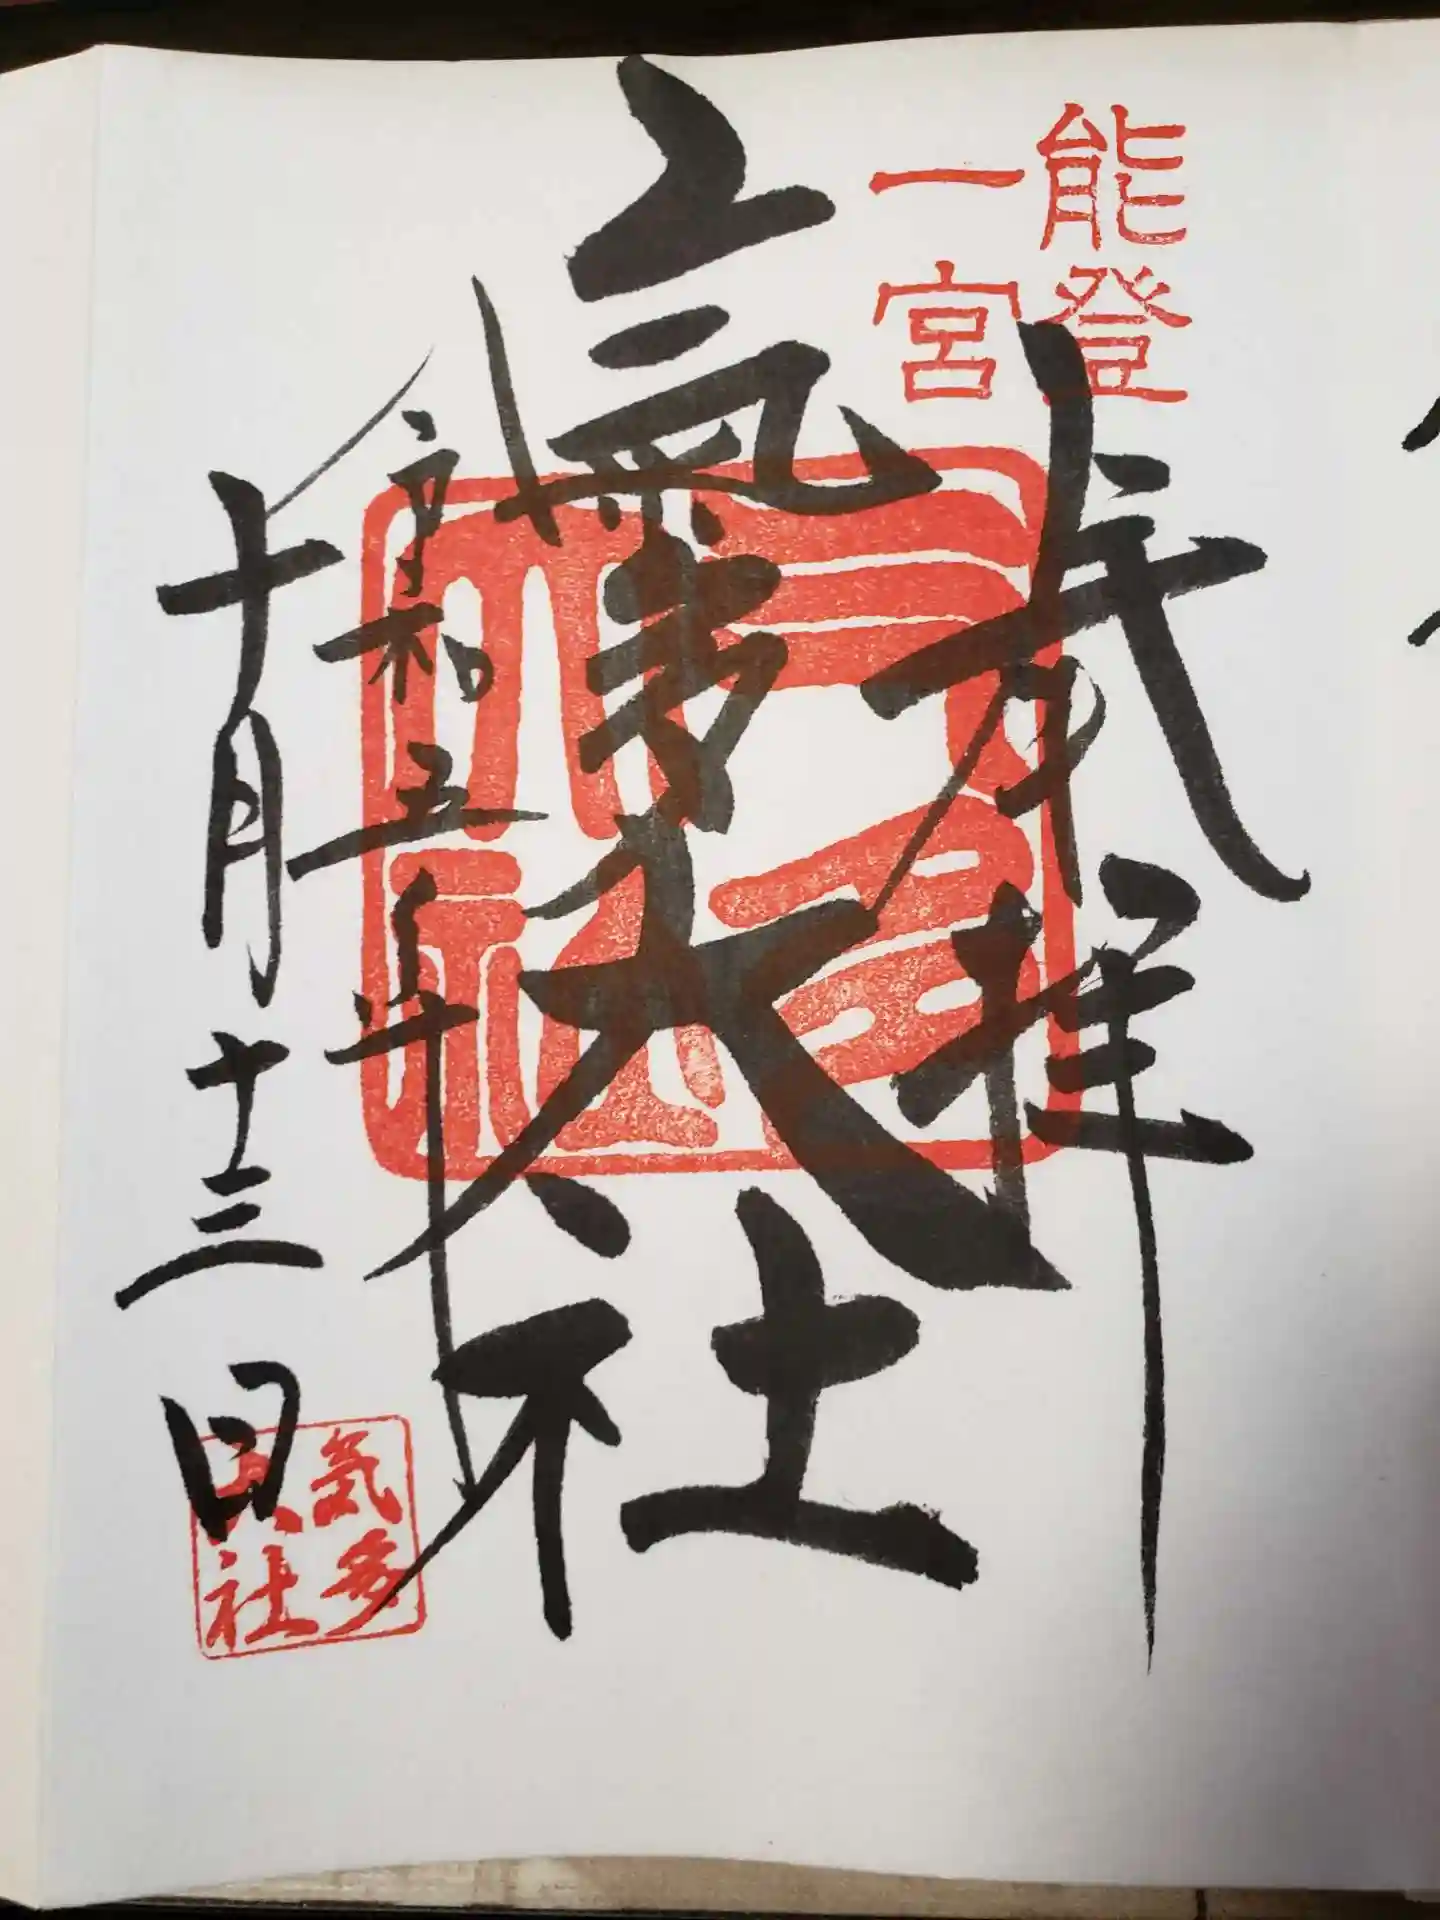 能登
一宮
奉拝
氣多大社
令和五年
十月十三日
氣多
大社
氣多
大社